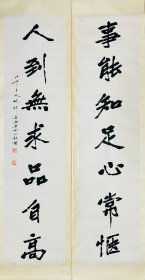 事能知足心常惬
人到無求品自高